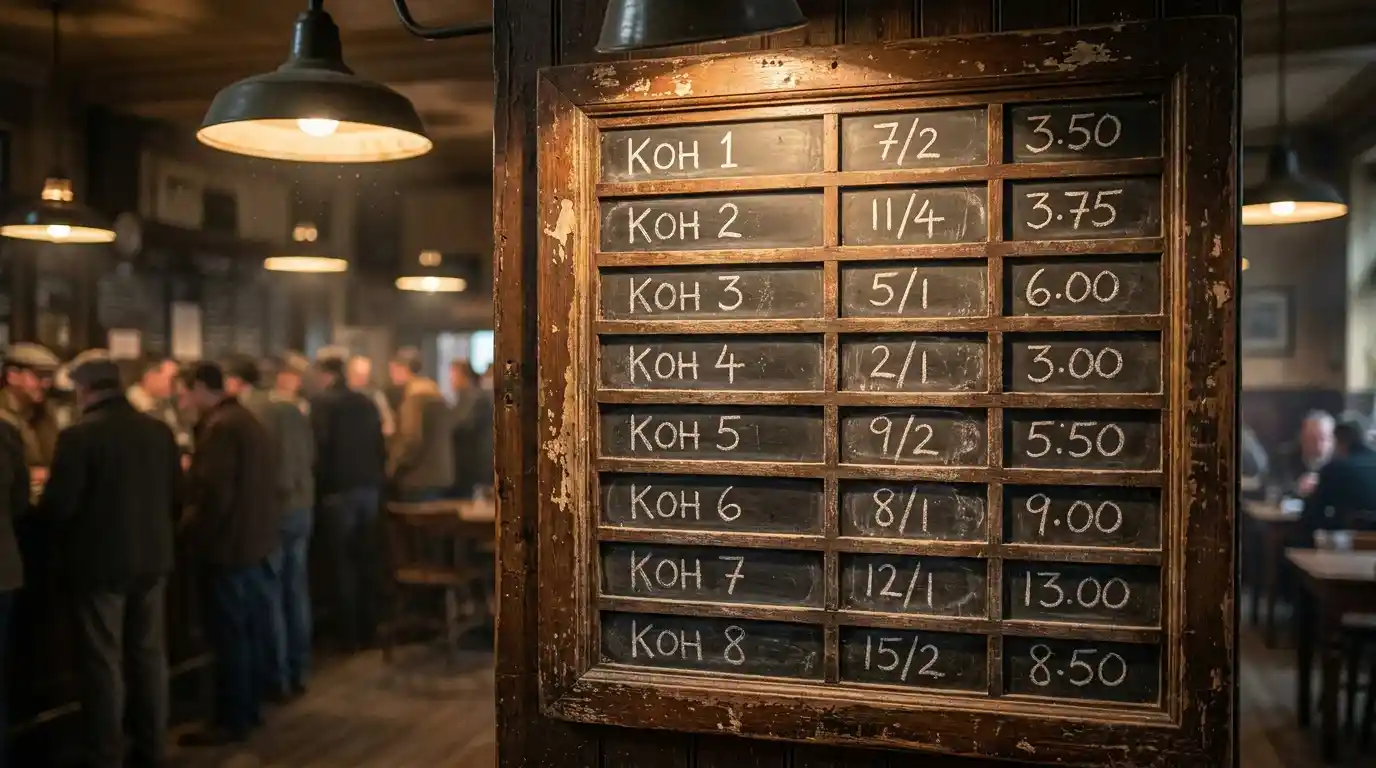 КОН 1 7/2 3.50
КОН 2 11/4 3.75
КОН 3 5/1 6.00
КОН 4 2/1 3.00
КОН 5 9/2 5.50
КОН 6 8/1 9.00
КОН 7 12/1 13.00
КОН 8 15/2 8.50